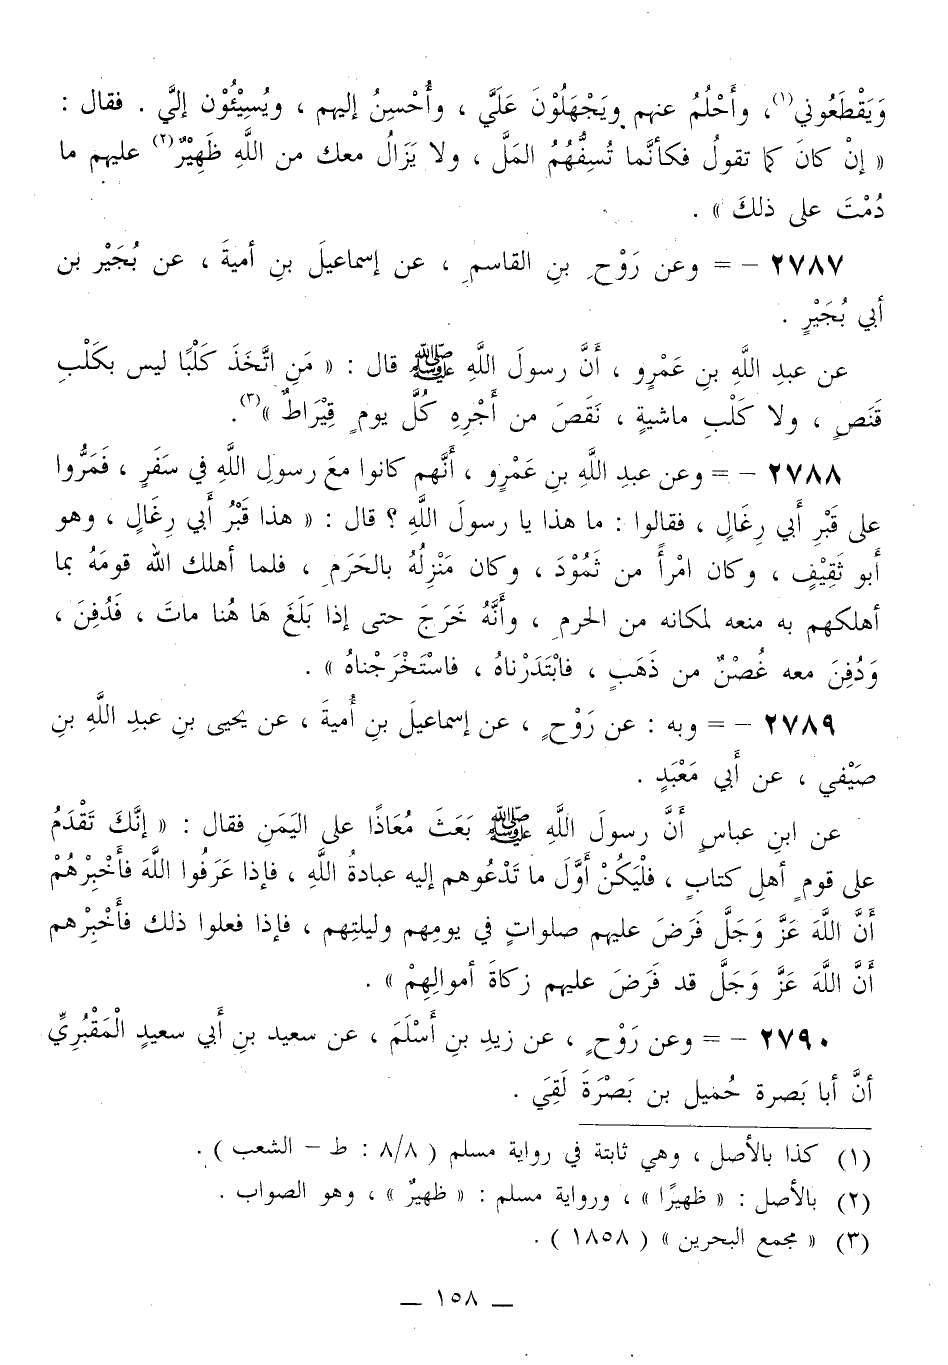 وَيَقْطَعُوني(١)، وأَحْلُمُ عنهم ويَجْهَلُوْنَ عَلَيَّ ، وأُحْسِنُ إليهم ، ويُسِيْئُوْن إليَّ . فقال :
« إنْ كانَ كما تقولُ فكأنَّما تُسِفُّهُمُ المَلَّ ، ولا يَزَالُ معك من اللَّهِ ظَهِيْرٌ(٢) عليهم ما
دُمْتَ على ذلكَ » .
٢٧٨٧ - = وعن رَوْحِ بنِ القاسمِ ، عن إسماعيلَ بنِ أميةَ ، عن بُجَيْر بن
أبي بُجَيْرٍ .
عن عبدِ اللَّهِ بنِ عَمْرٍو ، أنَّ رسولَ اللَّهِ ﷺ قال : « مَنِ اتَّخَذَ كَلْبًا ليس بكَلْبِ
قَنَصٍ ، ولا كَلْبِ ماشيةٍ ، نَقَصَ من أَجْرِهِ كُلَّ يومٍ قِيْرَاطٌ »(٣).
٢٧٨٨ - = وعن عبدِ اللَّهِ بنِ عَمْرٍو ، أنَّهم كانوا معَ رسولِ اللَّهِ في سَفَرٍ ، فَمَرُّوا
على قَبْرِ أَبي رِغَالٍ ، فقالوا : ما هذا يا رسولَ اللَّهِ ؟ قال : « هذا قَبْرُ أَبي رِغَالٍ ، وهو
أبو ثَقِيْفٍ ، وكان امْرأً من ثَمُوْدَ ، وكان مَنْزِلُهُ بالحَرَمِ ، فلما أهلك الله قومَهُ بما
أهلكهم به منعه لمكانه من الحرمِ ، وأنَّهُ خَرَجَ حتى إذا بَلَغَ هَا هُنا ماتَ ، فَدُفِنَ ،
وَدُفِنَ معه غُصْنٌ من ذَهَبٍ ، فابْتَدَرْناهُ ، فاسْتَخْرَجْناهُ » .
٢٧٨٩ - = وبه : عن رَوْحٍ ، عن إسماعيلَ بنِ أُميةَ ، عن يحيى بنِ عبدِ اللَّهِ بنِ
صَيْفي ، عن أَبي مَعْبَدٍ .
عن ابنِ عباسٍ أنَّ رسولَ اللَّهِ ﷺ بَعَثَ مُعَاذًا على اليَمنِ فقال : « إنَّكَ تَقْدَمُ
على قومٍ أهلِ كتابٍ ، فلْيَكُنْ أوَّلَ ما تَدْعُوهم إليه عبادةُ اللَّهِ ، فإذا عَرَفُوا اللَّهَ فأَخْبِرْهُمْ
أَنَّ اللَّهَ عَزَّ وَجَلَّ فَرَضَ عليهم صلواتٍ في يومِهم وليلتِهم ، فإذا فعلوا ذلك فأَخْبِرْهم
أَنَّ اللَّهَ عَزَّ وَجَلَّ قد فَرَضَ عليهم زكاةَ أموالِهِمْ » .
٢٧٩٠ - = وعن رَوْحٍ ، عن زيدِ بنِ أَسْلَمَ ، عن سعيد بنِ أَبي سعيدٍ الْمَقْبُرِيِّ
أنَّ أبا بَصرة حُميل بن بَصْرَةَ لَقِيَ .
(١) كذا بالأصل ، وهي ثابتة في رواية مسلم ( ٨/٨ : ط - الشعب ) .
(٢) بالأصل : « ظهيرًا » ، ورواية مسلم : « ظهيرٌ » ، وهو الصواب .
(٣) « مجمع البحرين » ( ١٨٥٨ ) .
— ١٥٨ —